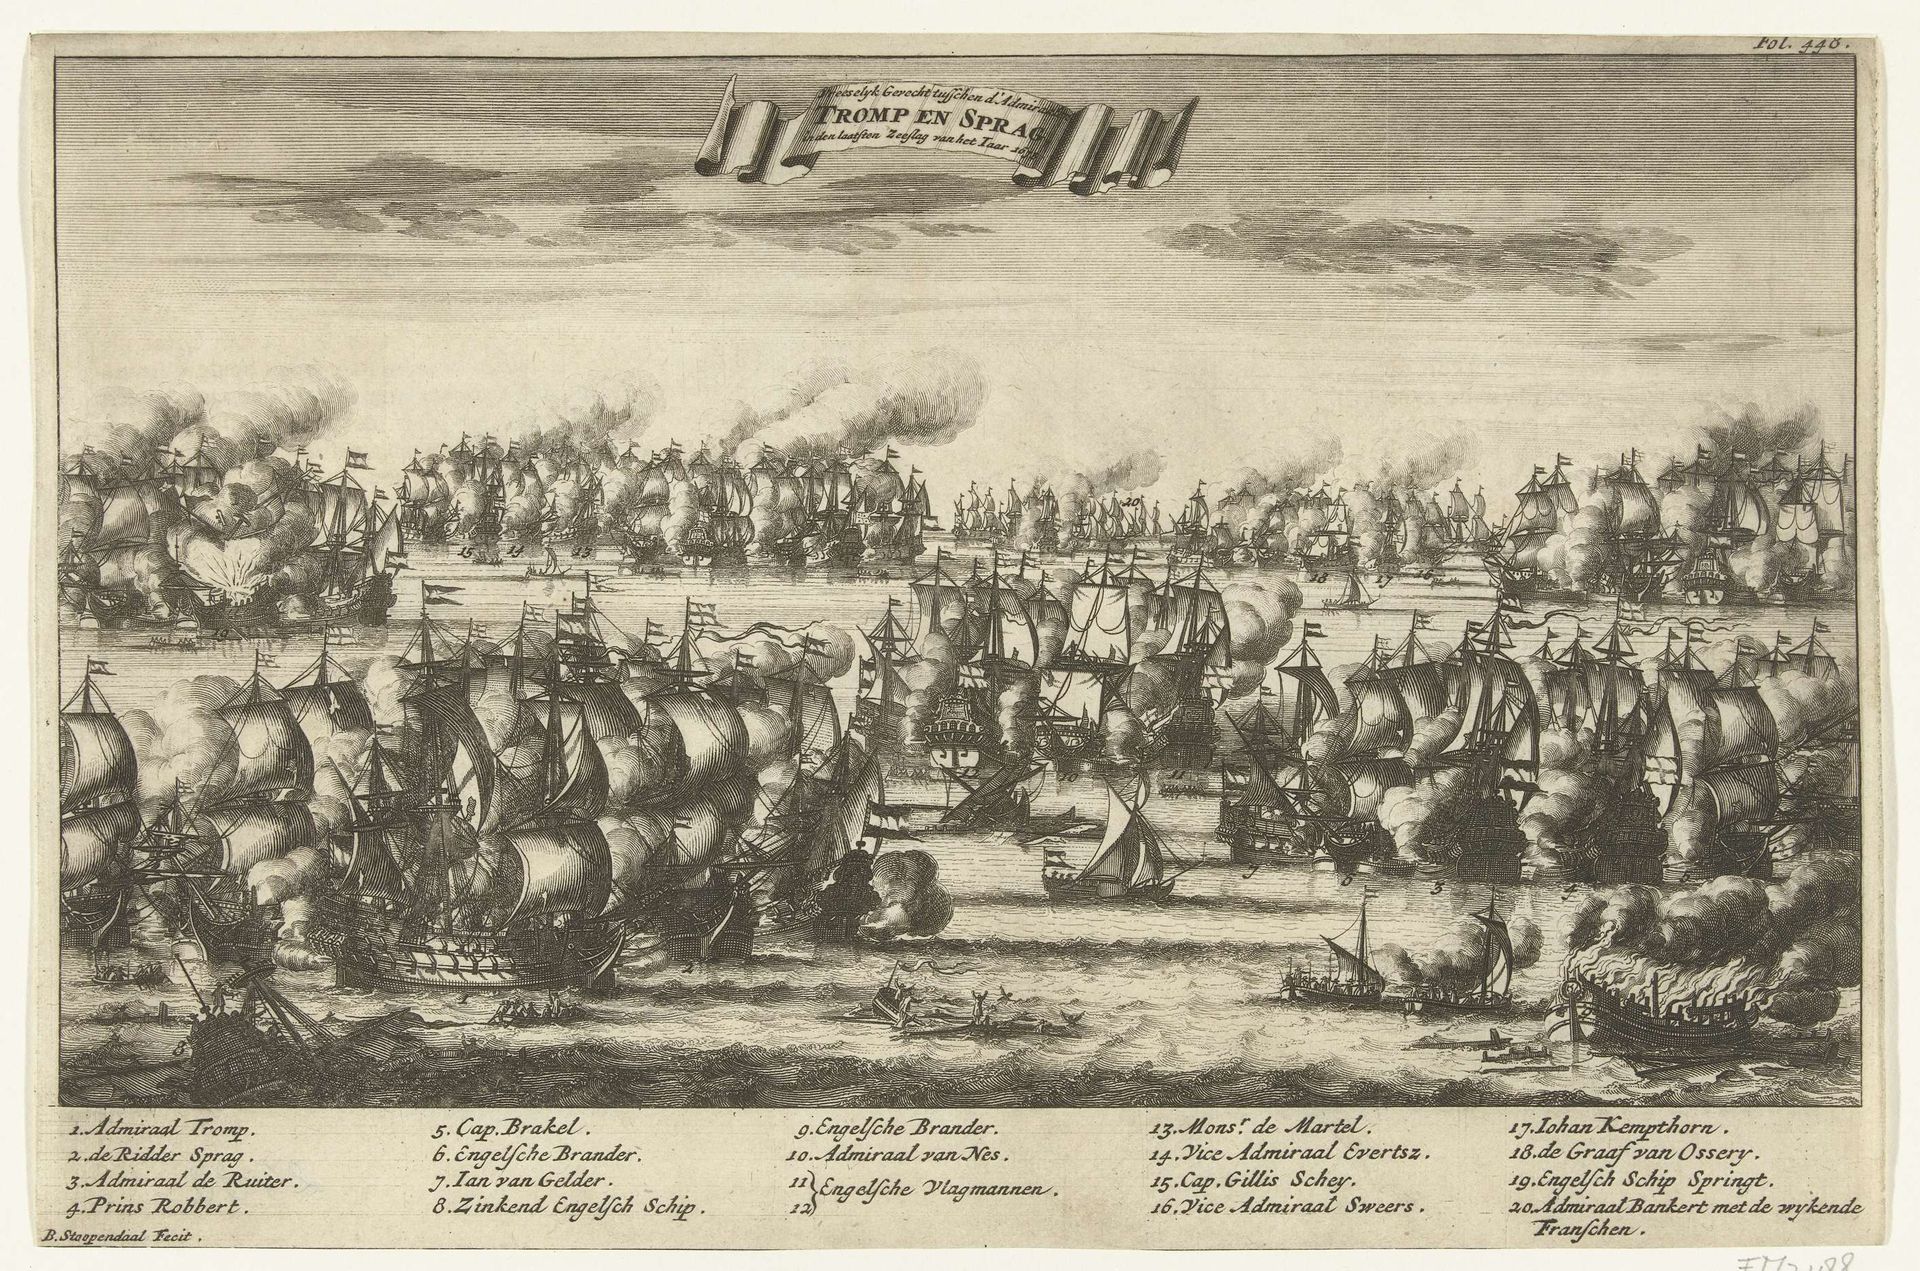 Fol. 448.
Vreeselyk Gevecht tusſchen d'Admiraals
TROMP EN SPRAG,
in den laatſten Zeeſlag van het Iaar
1. Admiraal Tromp.
2. de Ridder Sprag.
3. Admiraal de Ruiter.
4. Prins Robbert.
5. Cap. Brakel.
6. Engelſche Brander.
7. Ian van Gelder.
8. Zinkend Engelſch Schip.
9. Engelſche Brander.
10. Admiraal van Nes.
11 } Engelſche Vlagmannen.
12
13. Monsr. de Martel.
14. Vice Admiraal Evertsz.
15. Cap. Gillis Schey.
16. Vice Admiraal Sweers.
17. Iohan Kempthorn.
18. de Graaf van Ossery.
19. Engelſch Schip Springt.
20. Admiraal Bankert met de wykende
Franſchen.
B. Stoopendaal Fecit.